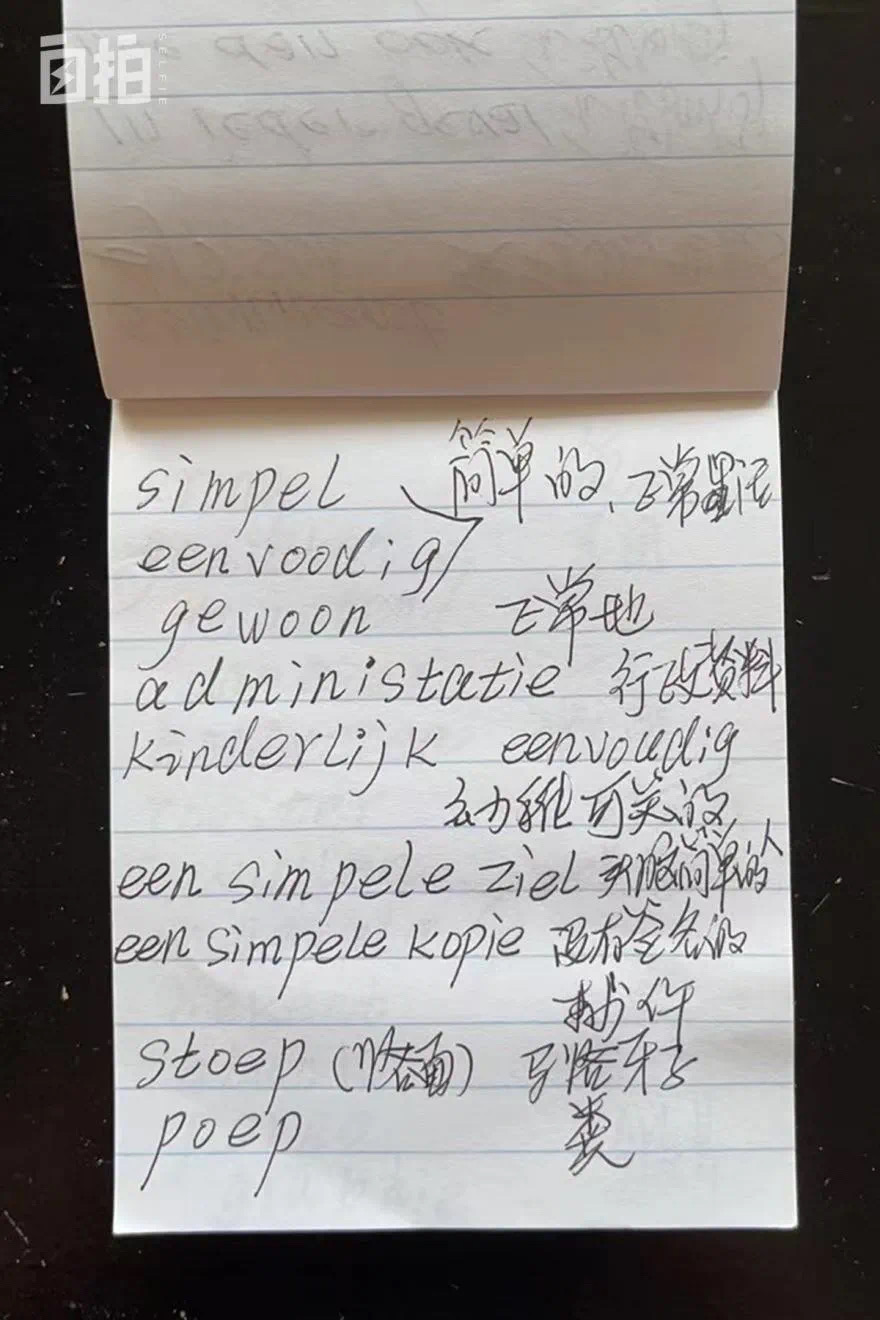 自拍
SELFIE
simpel 简单的、正常
eenvoodig
gewoon 正常地
administatie 行政资料
kinderlijk eenvoudig
幼稚可笑的
een simpele ziel 头脑简单的人
een simpele kopie 没有签名的
stoep (路面) 马路牙子
poep 粪